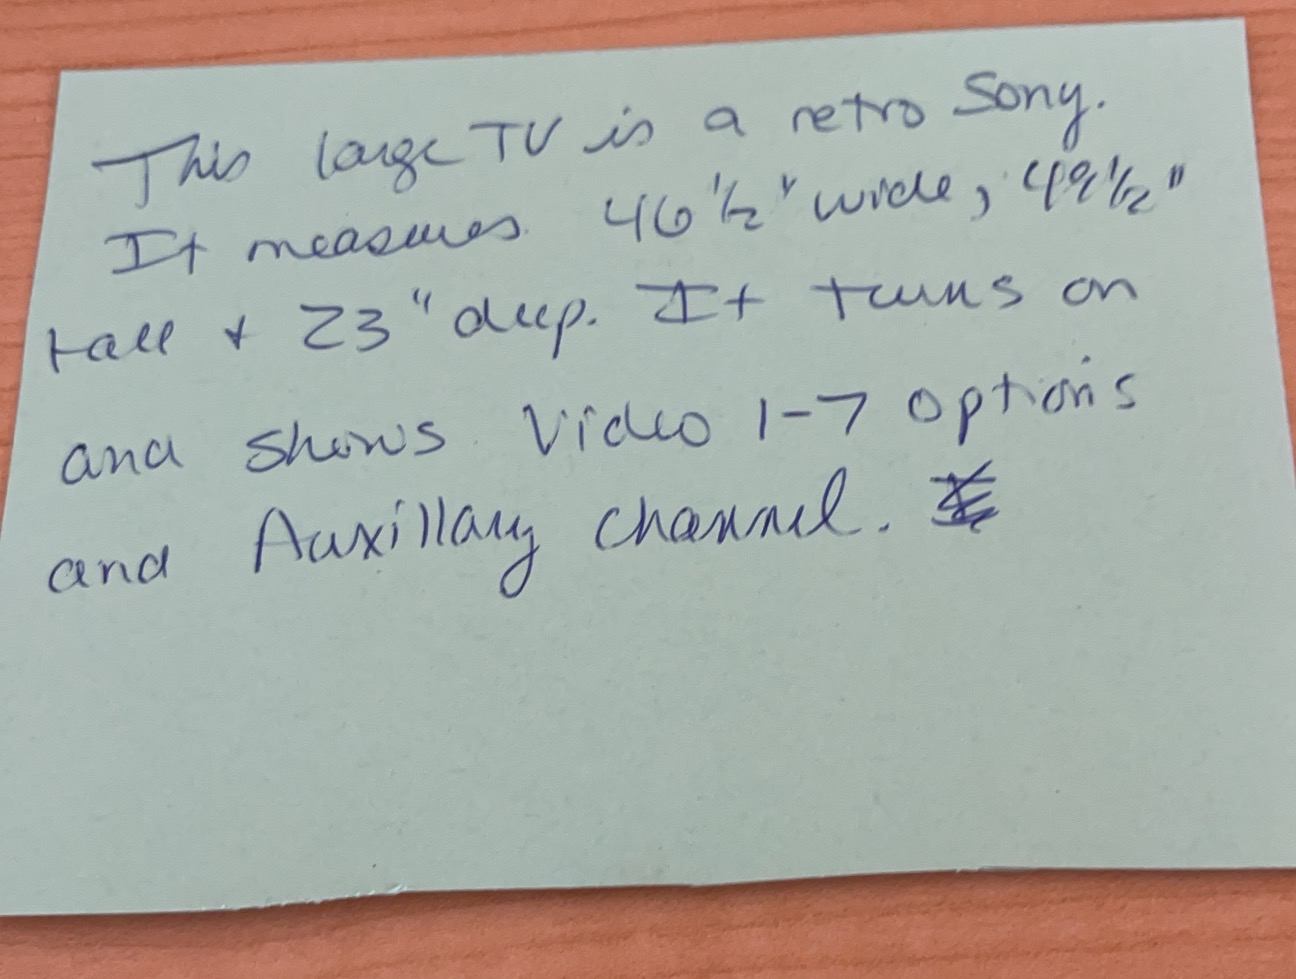 This large TV is a retro Sony.
It measures 46 1/2" wide, 49 1/2"
tall + 23" deep. It turns on
and shows Video 1-7 options
and Auxillary channel.